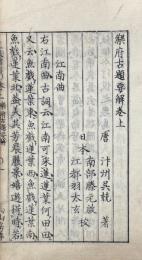 樂府古題要解卷上
唐 汴州吳兢 著
南部藤元啟
日本 校
江都羽太玄
江南曲
右江南曲古詞云江南可采蓮蓮葉何田田
又云魚戲蓮葉東魚戲蓮葉西魚戲蓮葉南
魚戲蓮葉北蓋美其芳晨麗景嬉遊得時若